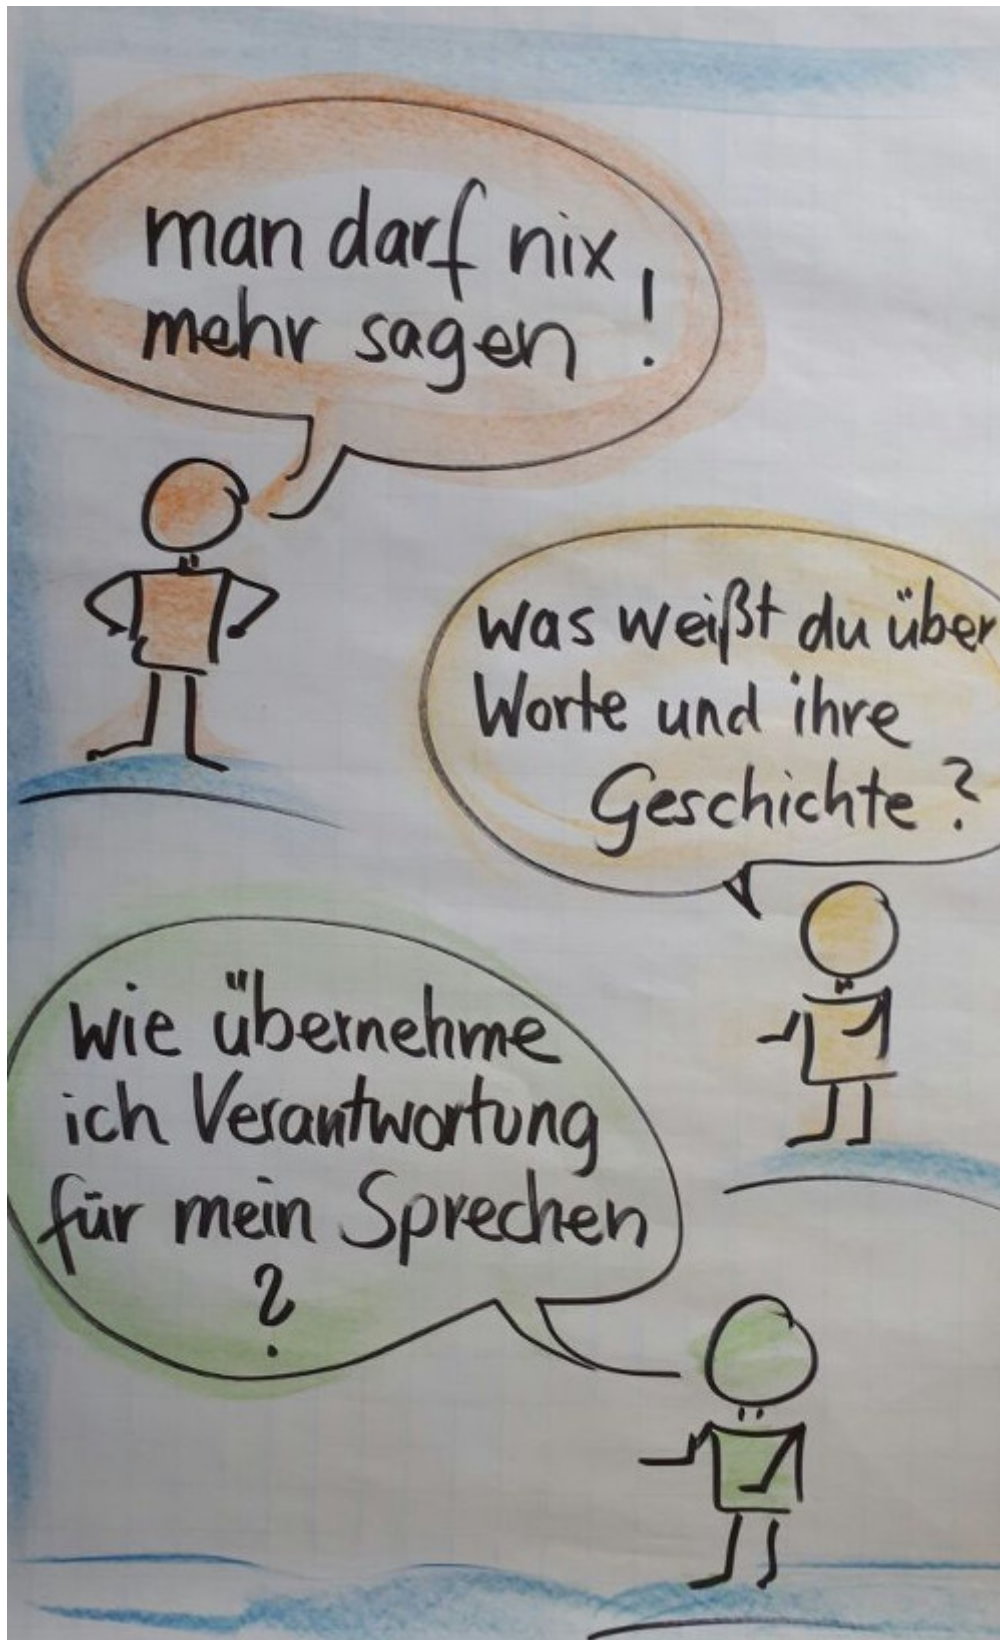 man darf nix
mehr sagen!
was weißt du über
Worte und ihre
Geschichte?
wie übernehme
ich Verantwortung
für mein Sprechen
?